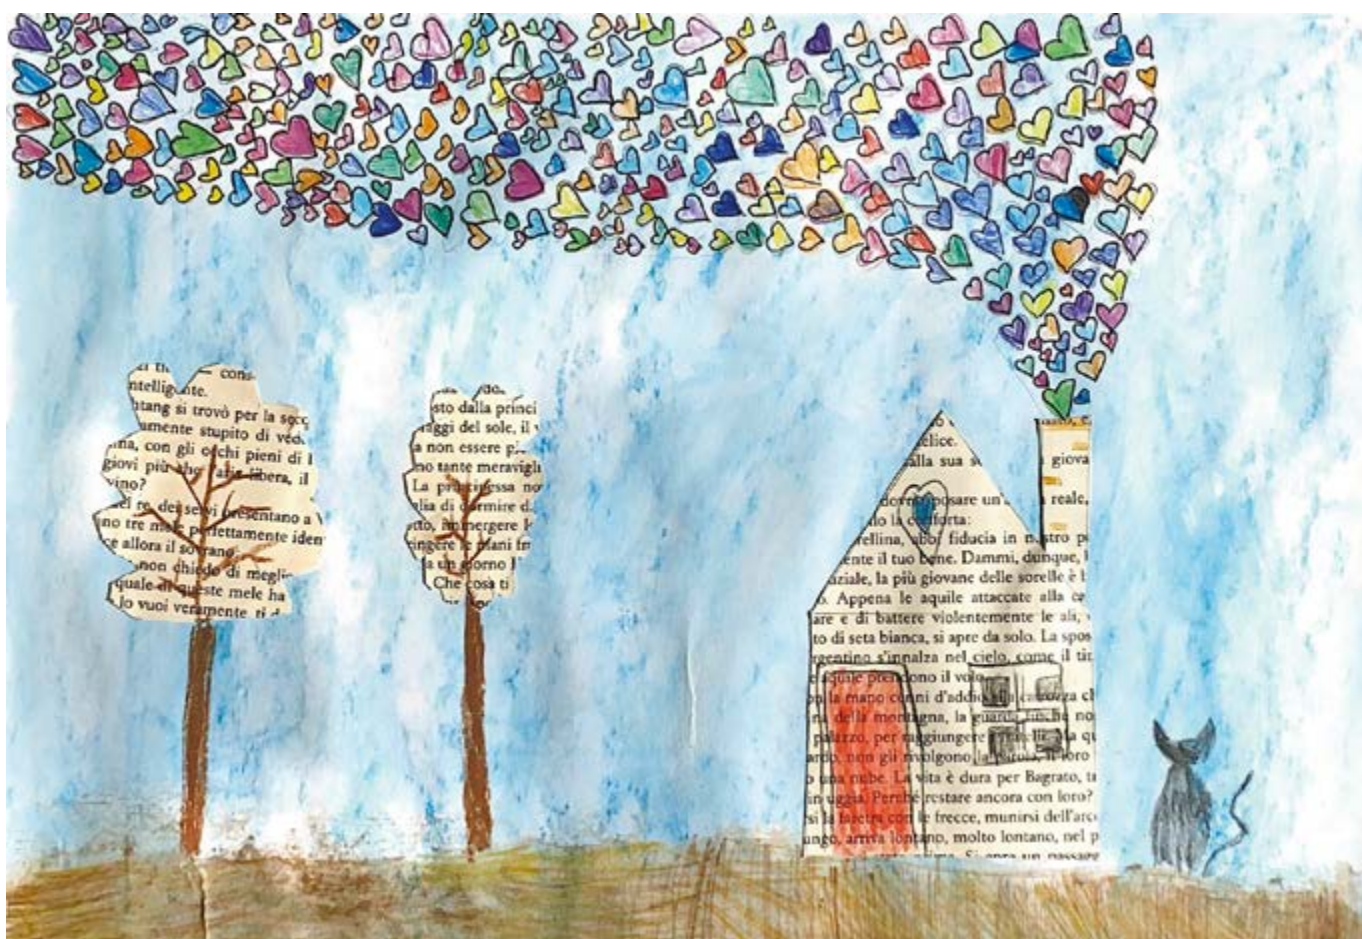 cons-
ntelligente.
ntang si trovò per la
amente stupito di
con gli occhi pieni di
giovi più che l'aria libera, il
vino?
presentano a
no tre mele perfettamente iden
ce allora il sovrano
non chiedo di megli-
quale di queste mele ha
lo vuoi veramente ti
sto dalla princi
aggi del sole, il
a non essere
no tante meravigli
La principessa no
glia di dormire d
immergere
ingere le mani
a un giorno
Che cosa ti
elice.
alla sua
giova
posare un'
reale,
lo la conforta:
fiducia in nostro
ente il tuo bene. Dammi, dunque,
aziale, la più giovane delle sorelle è
Appena le aquile attaccate alla
are e di battere violentemente le ali,
to di seta bianca, si apre da solo. La spos
rgentino s'innalza nel cielo, come il
e aquile prendono il volo.
la mano cenni d'addio alla carrozza
della montagna, la guarda finché no
palazzo, per raggiungere
ardo, non gli rivolgono la parola, il loro
una nube. La vita è dura per Bagrato,
in uggia. Perché restare ancora con loro?
si la faretra con le frecce, munirsi dell'arco
ungo, arriva lontano, molto lontano, nel p
Si apre un passagg